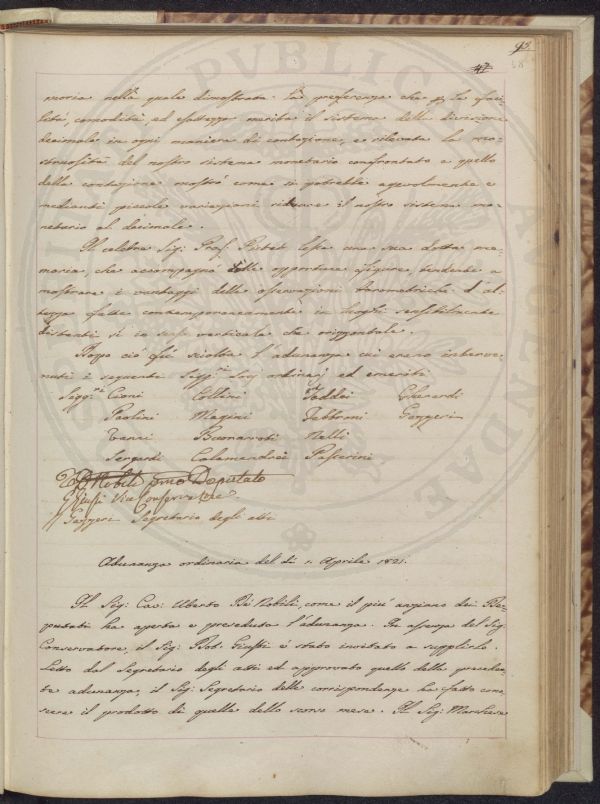 95
47
68
moria nella quale dimostrata la preferenza che per la faci-
lità, comodità, ed esattezza merita il sistema della divisione
decimale in ogni maniera di contazione, e rilevata la mo-
struosità del nostro sistema monetario confrontato a quello
della contazione mostrò come si potrebbe agevolmente e
mediante piccole variazioni ridurre il nostro sistema mo-
netario al decimale.
Il celebre Sig: Prof. Pictet lesse una sua dotta me-
moria, che accompagnò colle opportune figure, tendente a
mostrare i vantaggi delle osservazioni barometriche d'al-
tezza fatte contemporaneamente in luoghi sensibilmente
distanti sì in senso verticale che orizzontale.
Dopo ciò fu sciolta l'adunanza cui erano interve-
nuti i seguenti Sigg.ri Soci ordinarj ed emeriti
Sigg.ri Cioni Collini Taddei Gherardi
Paolini Magini Fabbroni Gazzeri
Vanni Buonaroti Nalli
Sergardi Calamandrei Passerini
U. Nobili Primo Deputato
G. Giusti Vice Conservatore
Gazzeri Segretario degli atti
Adunanza ordinaria del dì 1. Aprile 1821.
Il Sig: Cav: Uberto De Nobili, come il più anziano dei De-
putati ha aperta e preseduta l'adunanza. In assenza del Sig:
Conservatore, il Sig: Dot: Giusti è stato invitato a supplirlo.
Letto dal Segretario degli atti ed approvato quello della preceden-
te adunanza, il Sig: Segretario delle corrispondenze ha fatto cono-
scere il prodotto di quelle dello scorso mese. Il Sig: Marchese